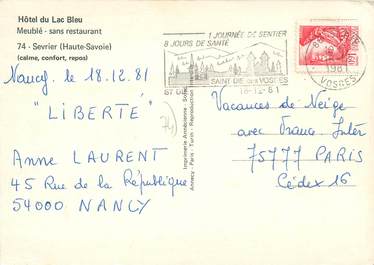 Hôtel du Lac Bleu
Meublé - sans restaurant
74 - Sevrier (Haute-Savoie)
(calme, confort, repos)
1 JOURNÉE DE SENTIER
8 JOURS DE SANTÉ
SAINT DIÉ DES VOSGES
18-12-81
1981
VOSGES
Nancy le 18.12.81
"LIBERTÉ"
Anne LAURENT
45 Rue de la République
54000 NANCY
Vacances de Neige
avec France-Inter
75777 PARIS
Cédex 16